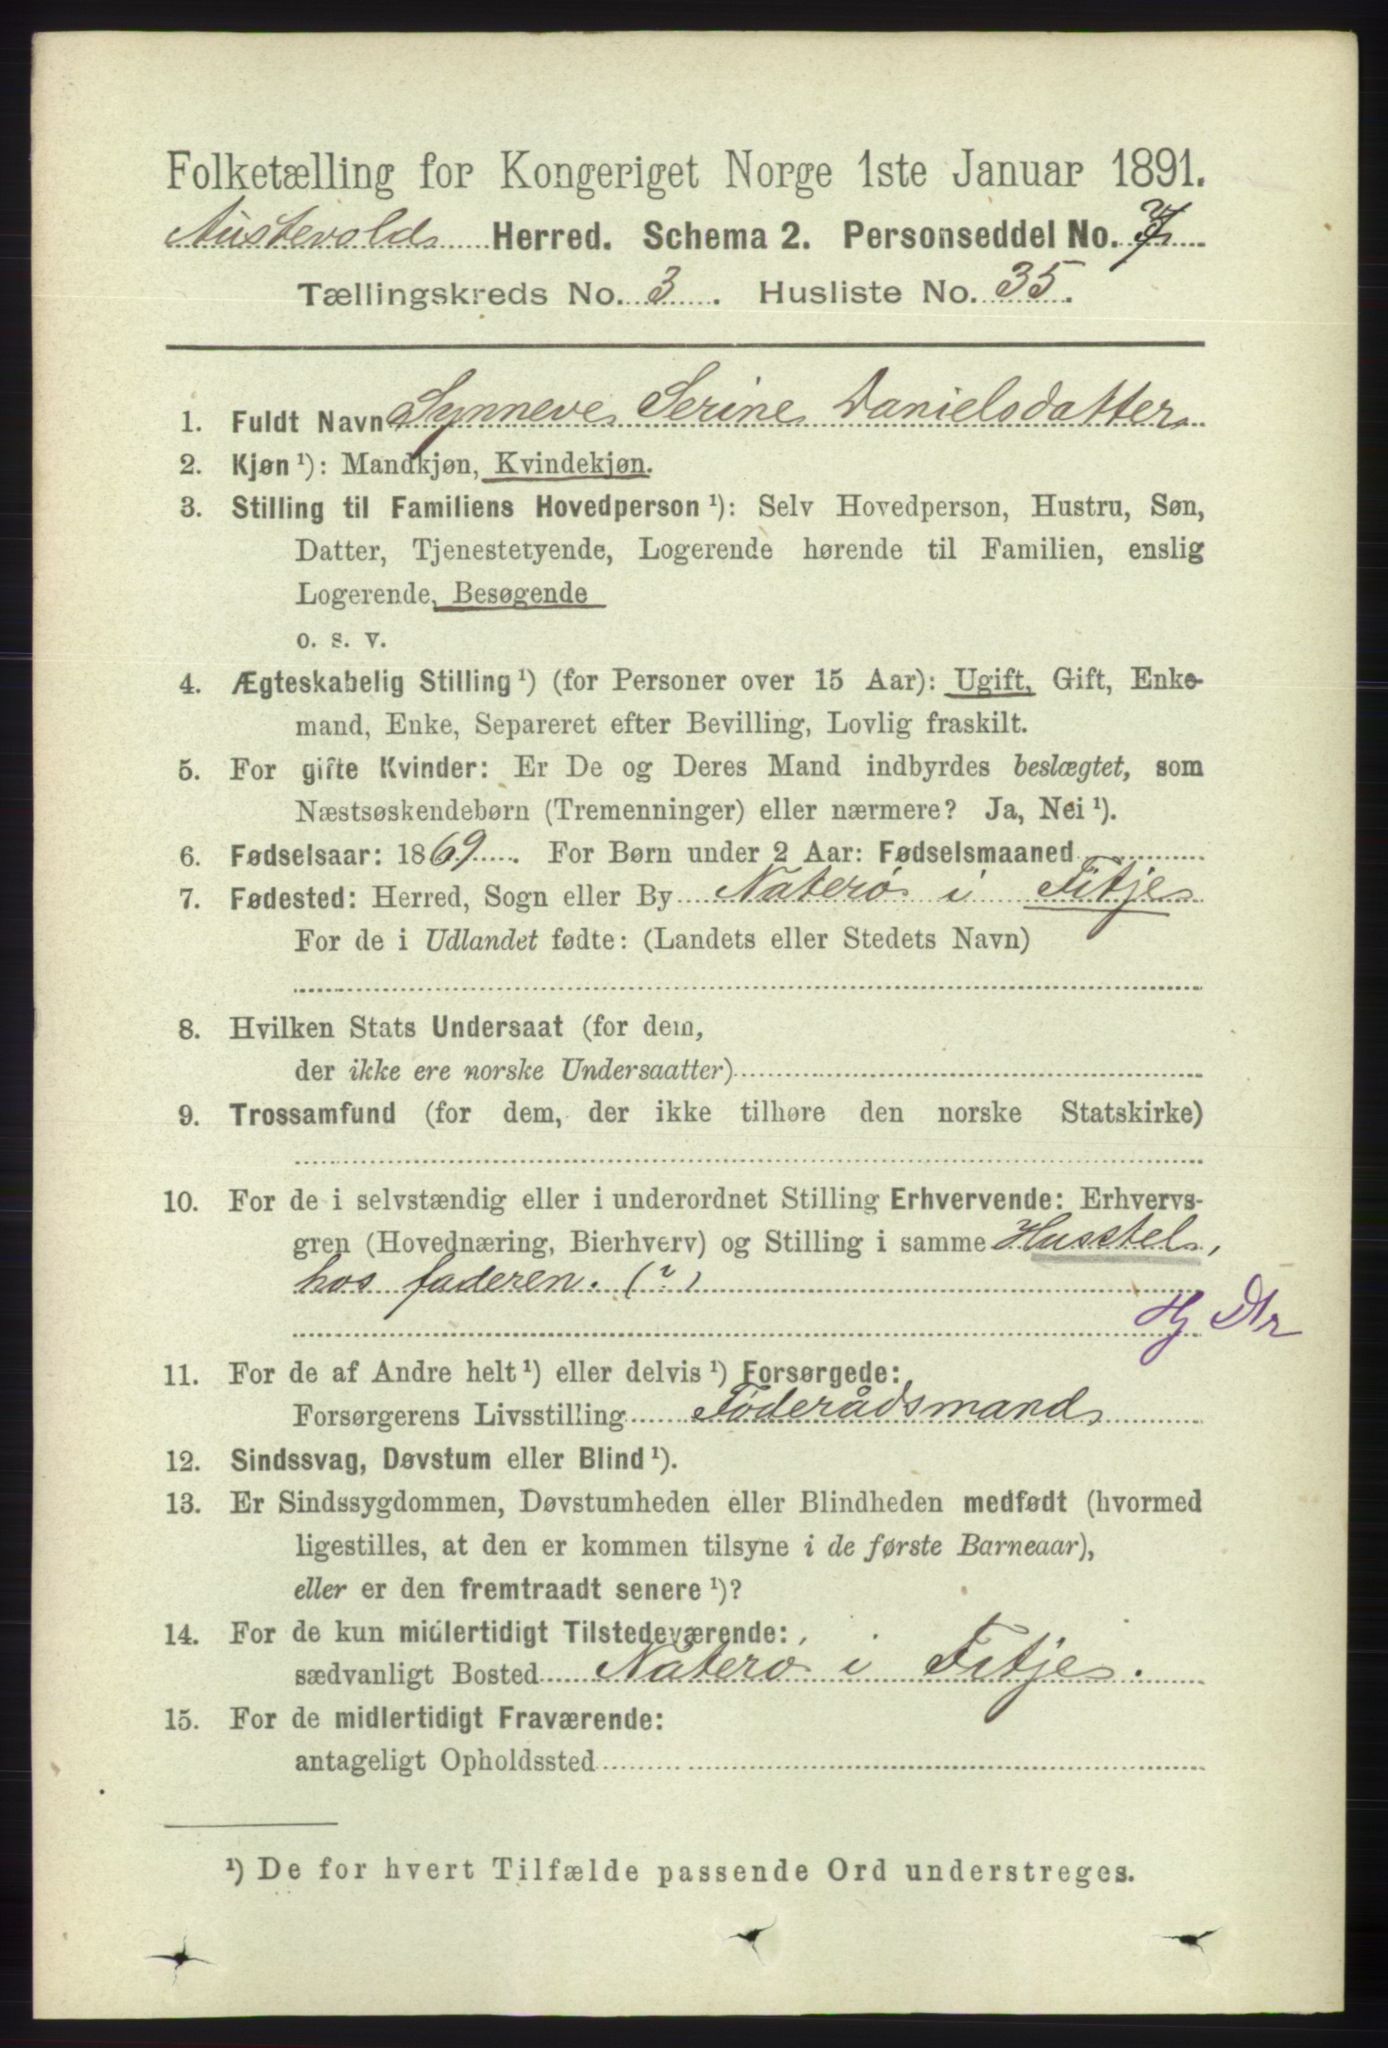 Folketælling for Kongeriget Norge 1ste Januar 1891.
Austevold Herred. Schema 2. Personseddel No. 7
Tællingskreds No. 3. Husliste No. 35.
1. Fuldt Navn Synneve Serine Danielsdatter
2. Kjøn ¹): Mandkjøn, Kvindekjøn.
3. Stilling til Familiens Hovedperson ¹): Selv Hovedperson, Hustru, Søn,
Datter, Tjenestetyende, Logerende hørende til Familien, enslig
Logerende, Besøgende
o. s. v.
4. Ægteskabelig Stilling ¹) (for Personer over 15 Aar): Ugift, Gift, Enke-
mand, Enke, Separeret efter Bevilling, Lovlig fraskilt.
5. For gifte Kvinder: Er De og Deres Mand indbyrdes beslægtet, som
Næstsøskendebørn (Tremenninger) eller nærmere? Ja, Nei ¹).
6. Fødselsaar: 1869. For Børn under 2 Aar: Fødselsmaaned
7. Fødested: Herred, Sogn eller By Naterø i Fitje
For de i Udlandet fødte: (Landets eller Stedets Navn)
8. Hvilken Stats Undersaat (for dem,
der ikke ere norske Undersaatter)
9. Trossamfund (for dem, der ikke tilhøre den norske Statskirke)
10. For de i selvstændig eller i underordnet Stilling Erhvervende: Erhvervs-
gren (Hovednæring, Bierhverv) og Stilling i samme Husstel,
hos faderen. (?)
Hj Dtr
11. For de af Andre helt ¹) eller delvis ¹) Forsørgede:
Forsørgerens Livsstilling Föderådsmand
12. Sindssvag, Døvstum eller Blind ¹).
13. Er Sindssygdommen, Døvstumheden eller Blindheden medfødt (hvormed
ligestilles, at den er kommen tilsyne i de første Barneaar),
eller er den fremtraadt senere ¹)?
14. For de kun midlertidigt Tilstedeværende:
sædvanligt Bosted Naterö i Fitje.
15. For de midlertidigt Fraværende:
antageligt Opholdssted
¹) De for hvert Tilfælde passende Ord understreges.